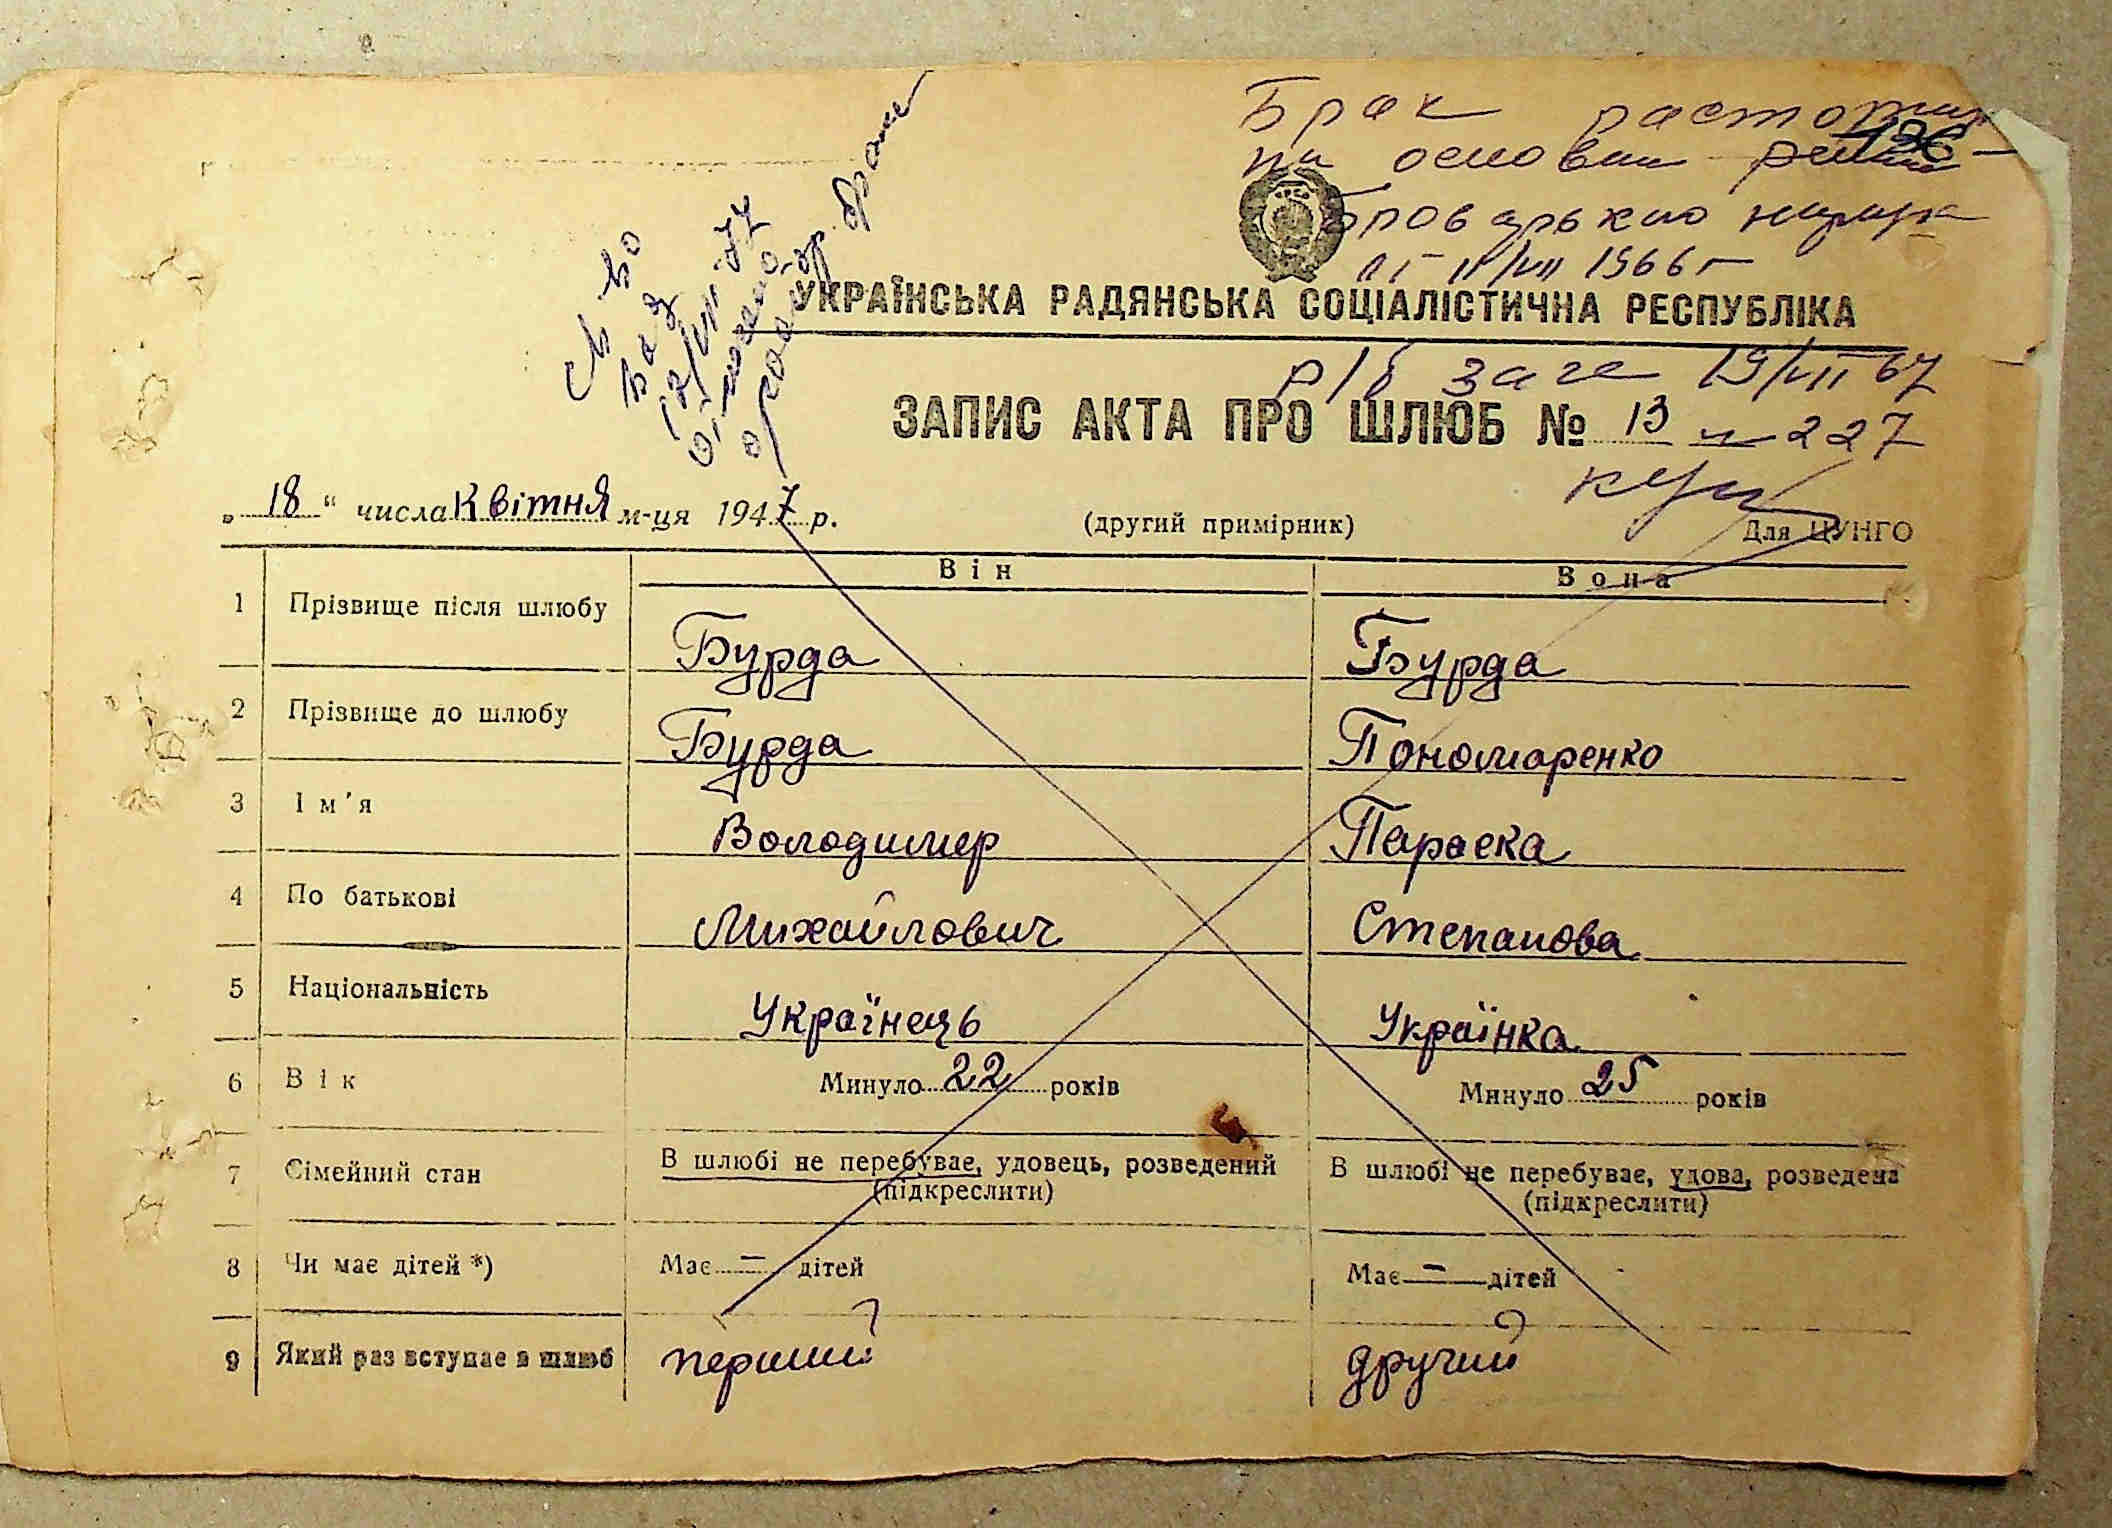 Брак
на основан
1966 г
УКРАЇНСЬКА РАДЯНСЬКА СОЦІАЛІСТИЧНА РЕСПУБЛІКА
р/б загс 19/VII 67
ЗАПИС АКТА ПРО ШЛЮБ № 13
227
„ 18 “ числа Квітня м-ця 1947 р.
(другий примірник)
Для ЦУНГО
Він Вона
1 Прізвище після шлюбу Бурда Бурда
2 Прізвище до шлюбу Бурда Пономаренко
3 Ім'я Володимер Параска
4 По батькові Михайлович Степанова
5 Національність Українець Українка
6 Вік Минуло 22 років Минуло 25 років
7 Сімейний стан В шлюбі не перебуває, удовець, розведений В шлюбі не перебуває, удова, розведена
(підкреслити) (підкреслити)
8 Чи має дітей *) Має – дітей Має – дітей
9 Який раз вступає в шлюб перший другий